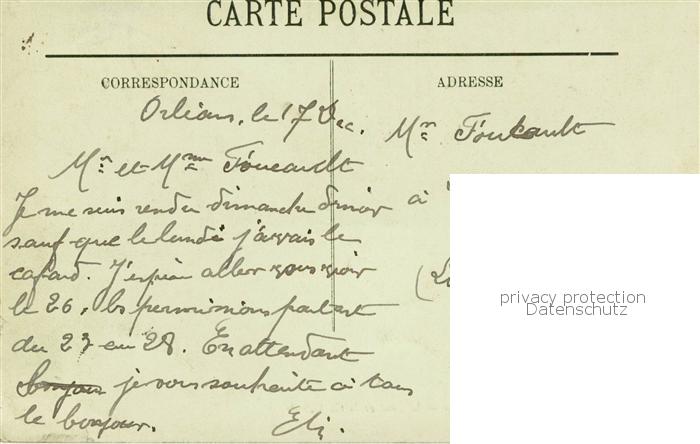 CARTE POSTALE
CORRESPONDANCE
ADRESSE
Orléans, le 17 Dec.
Mr Foucault
Mr et Mme Foucault
à
Je me suis rendu dimanche dernier
sauf que le lundi j'avais le
cafard. J'espère aller vous voir
le 26, les permissions partent
du 23 au 28. En attendant
bonjour je vous souhaite à tous
le bonjour.
privacy protection
Datenschutz